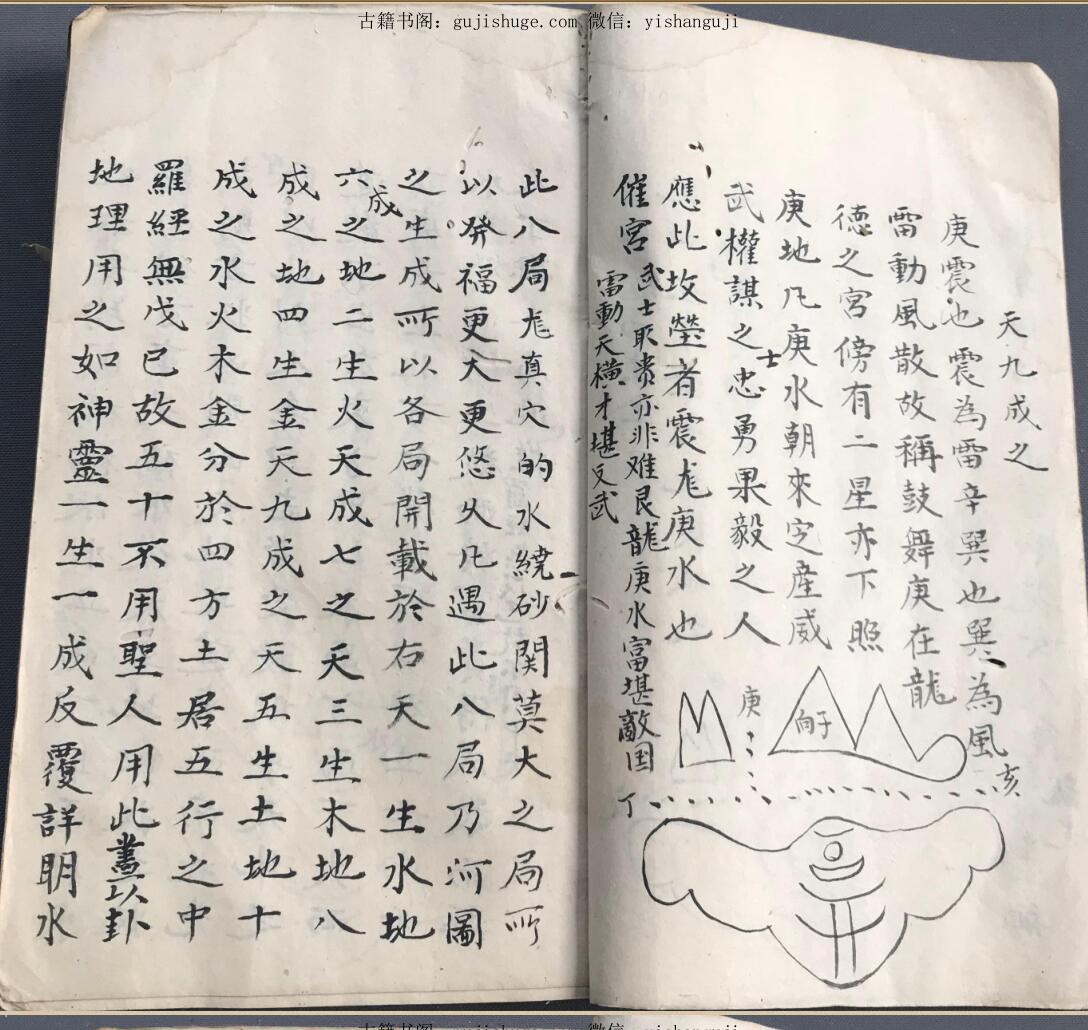 古籍书阁：gujishuge.com 微信：yishanguji
天九成之
庚震也震為雷辛巽也巽為風
雷動風散故稱鼓舞庚在龍
德之宮傍有二星亦下照
庚地凡庚水朝來定產威
武權謀之士忠勇果毅之人
應此坟塋者震尨庚水也
催宮
武士取贵亦非难艮龍庚水富堪敵国
雷動天横才堪文武
庚
向子
亥
丁
此八局尨真穴的水繞砂関莫大之局所
以發福更大更悠久凡遇此八局乃河圖
之生成所以各局開載於右天一生水地
六成之地二生火天成七之天三生木地八
成之地四生金天九成之天五生土地十
成之水火木金分於四方土居五行之中
羅經無戊己故五十不用聖人用此畫以卦
地理用之如神靈一生一成反覆詳明水
古籍书阁：gujishuge.com 微信：yishanguji